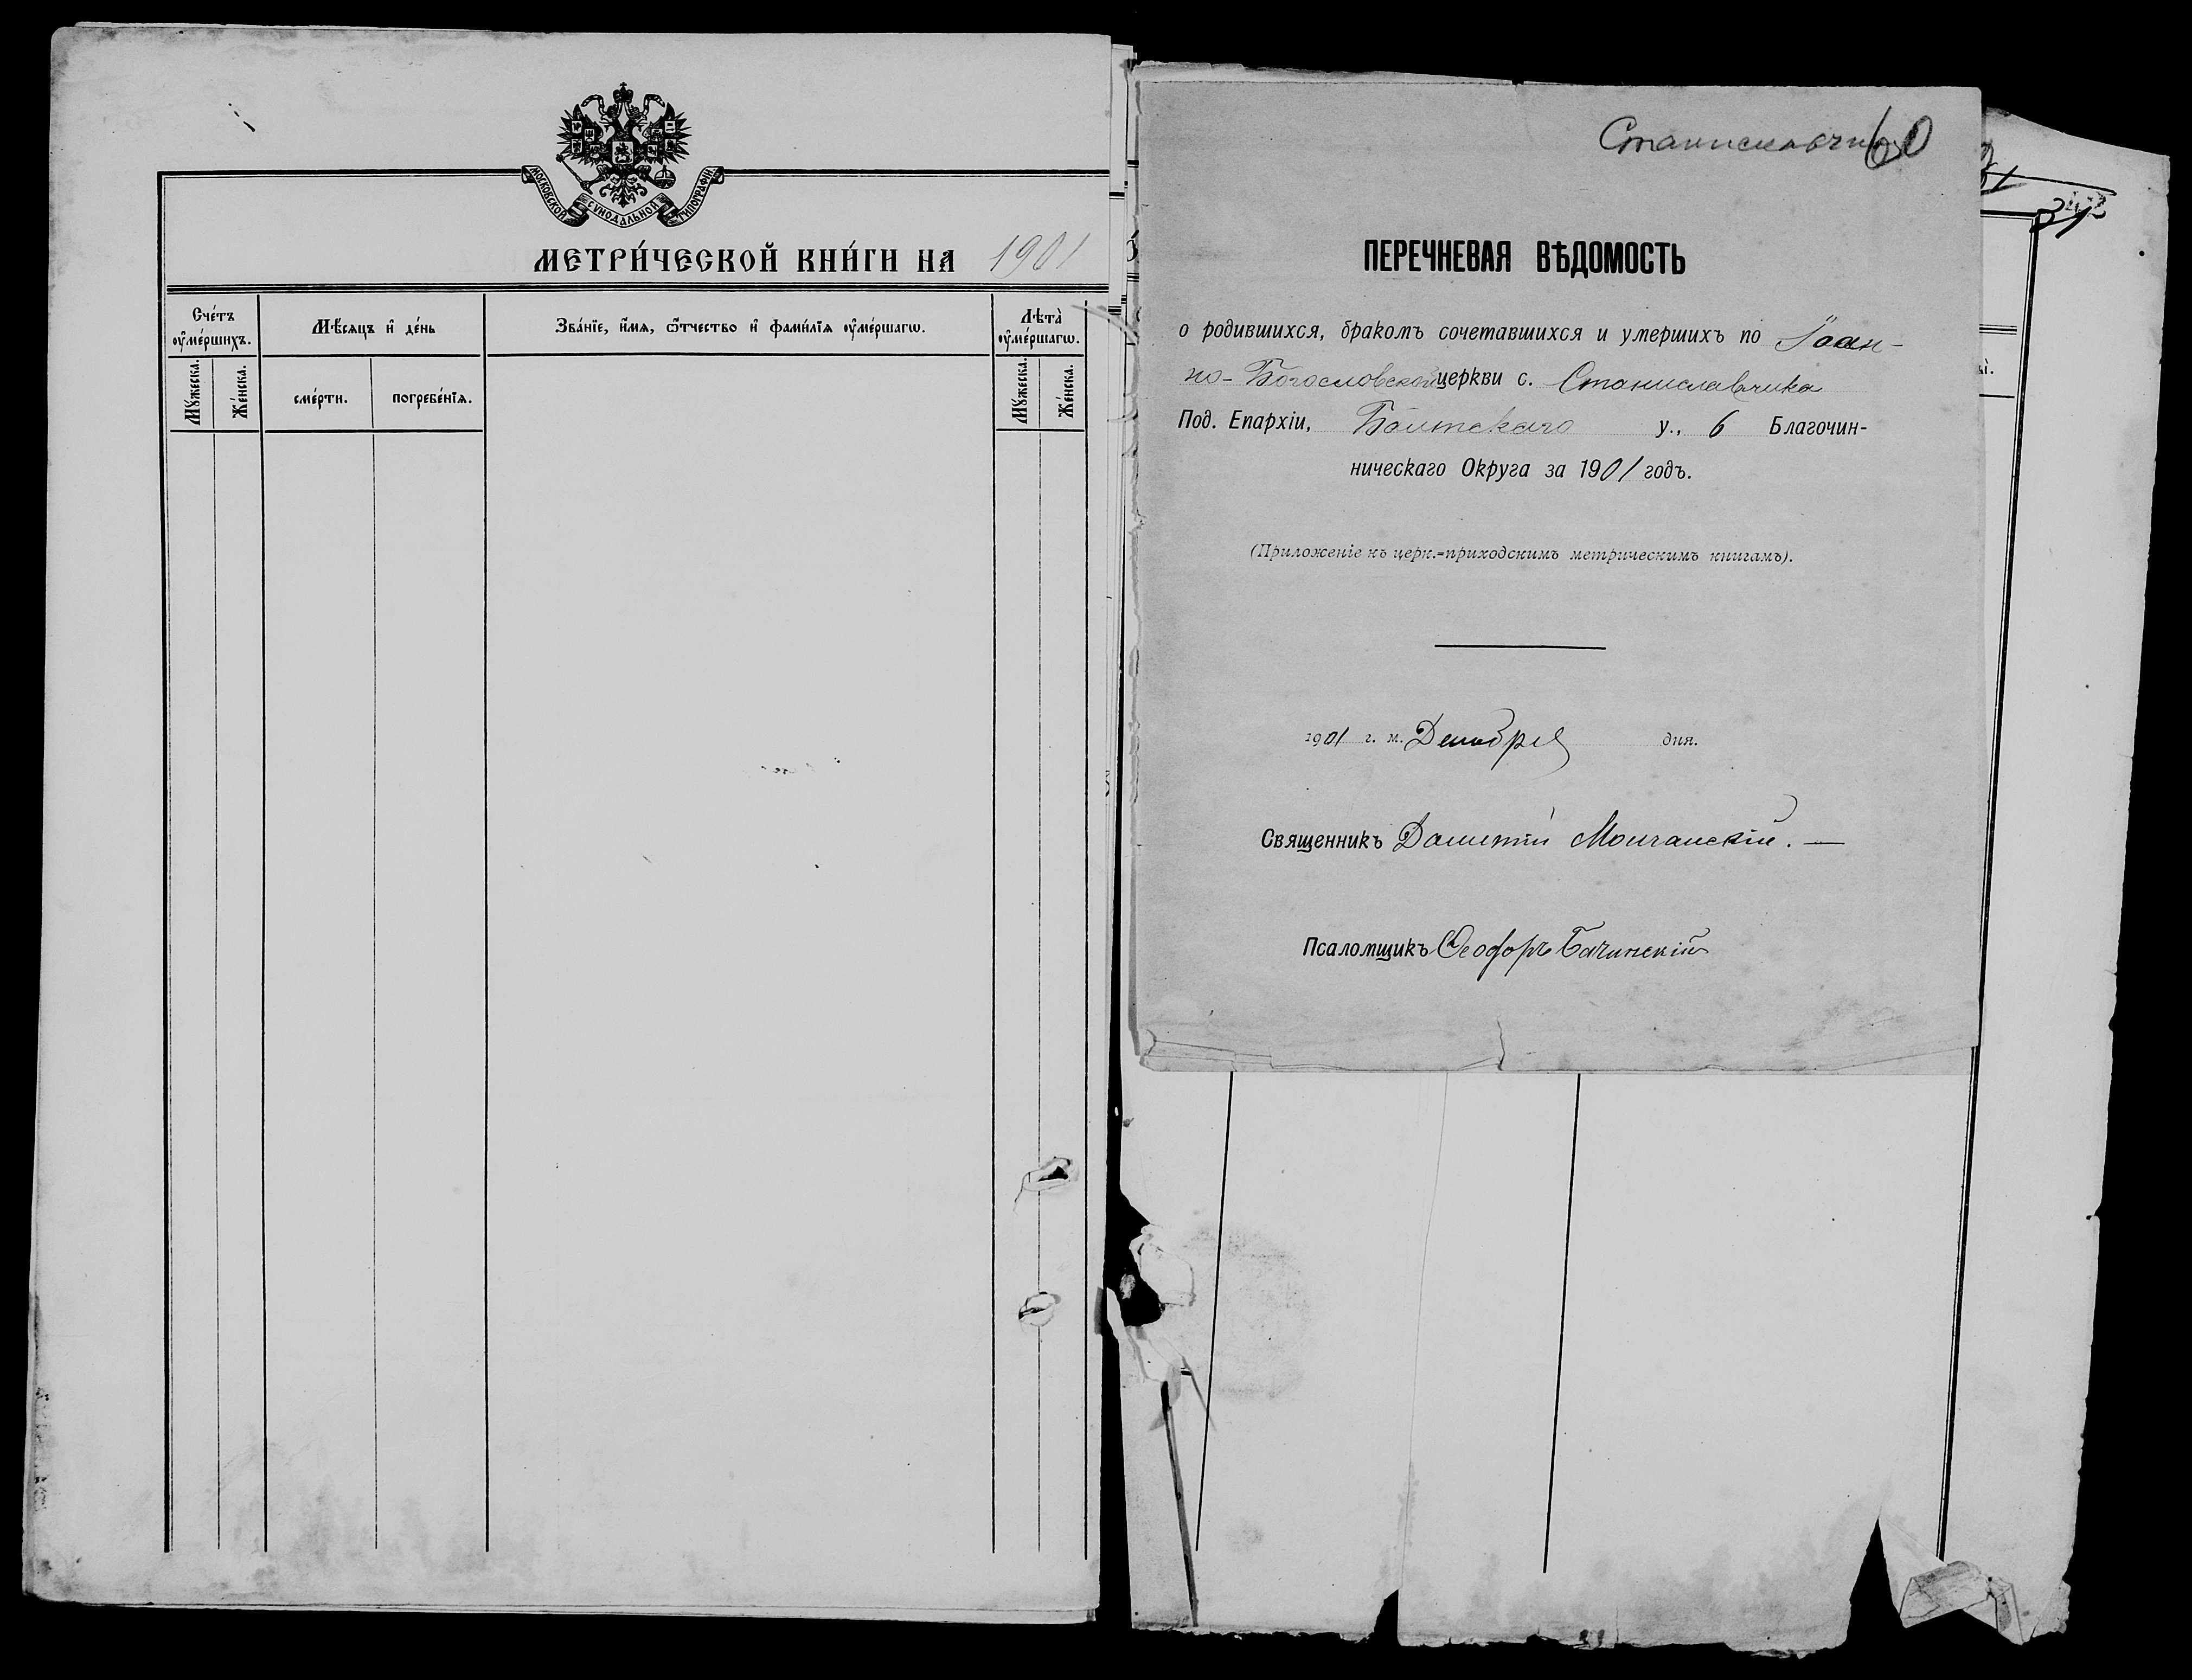 МОСКОВСКОЙ СѴНОДАЛЬНОЙ ТИПОГРАФІИ
МЕТРИ́ЧЕСКОЙ КНИ́ГИ НА 1901
Сче́тъ ᲂу҆ме́ршихъ.
Мꙋ́жеска.
Же́нска.
Мѣ́сяцъ и҆ де́нь
сме́рти.
погребе́нїѧ.
Зва́нїе, и҆́мѧ, ѻ҆́тчество и҆ фами́лїѧ ᲂу҆ме́ршагѡ.
Лѣ́та ᲂу҆ме́ршагѡ.
Мꙋ́жеска.
Же́нска.
Станиславчик 60
ПЕРЕЧНЕВАЯ ВѢДОМОСТЬ
о родившихся, бракомъ сочетавшихся и умершихъ по Іоан-
но-Богословской церкви с. Станиславчика
Под. Епархіи, Балтскаго у., 6 Благочин-
ническаго Округа за 1901 годъ.
(Приложеніе къ церк.=приходскимъ метрическимъ книгамъ).
1901 г. м. Декабря дня.
Священникъ Дометій Молчанскій. —
Псаломщикъ Ѳеодоръ Бачинскій